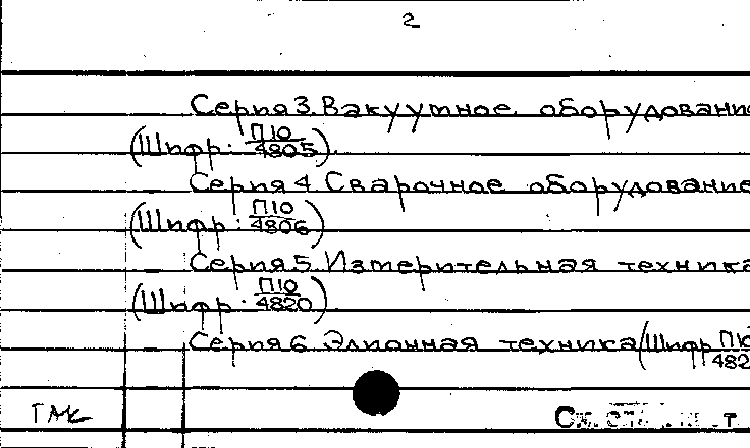 2
Серия 3. Вакуумное оборудовани
(Шифр: П10/4805).
Серия 4. Сварочное оборудование
(Шифр: П10/4806)
Серия 5. Измерительная техника
(Шифр: П10/4820).
Серия 6. Элионная техника (Шифр П10/482
ТАК
См. т